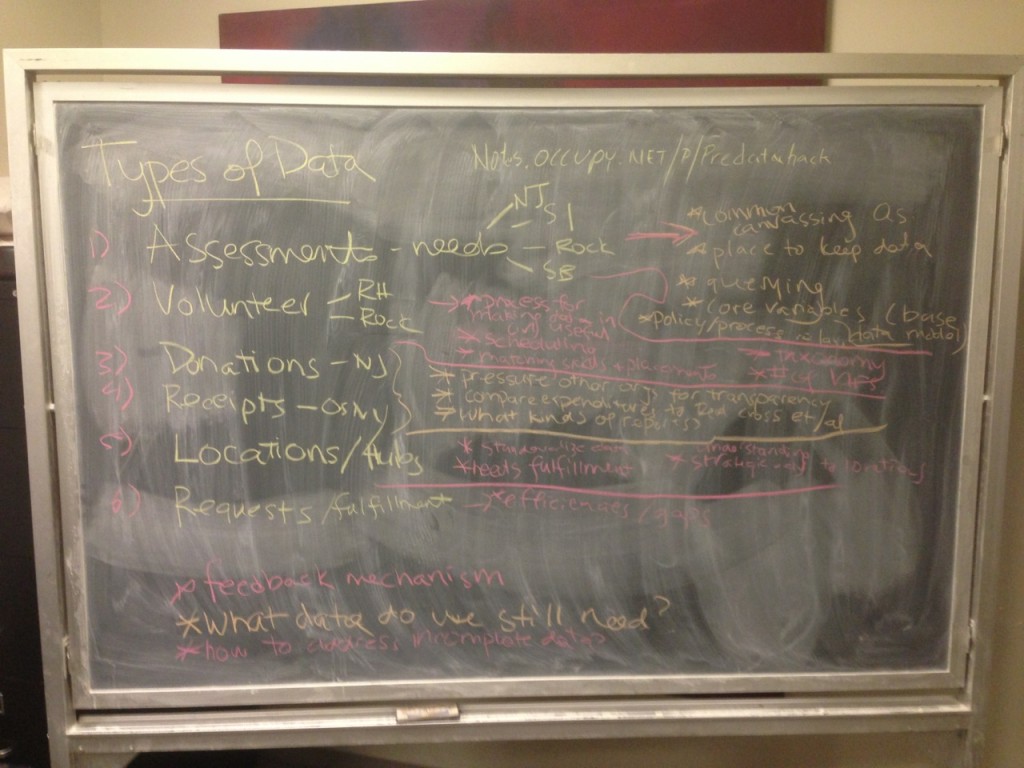 Types of Data
Notes.OCCUPY.NET/P/Predatahack
1) Assessments - needs
NJ
SI
Rock
SB
* common canvassing Qs
* place to keep data
* querying
* core variables (base data model)
* policy/process
2) Volunteer
RH
Rock
* process for making data in and useful
* scheduling
* matching skills + placement
* taxonomy
3) Donations - NJ
4) Receipts - OSNY
* pressure other orgs for transparency
* compare expenditures to Red Cross et/al
* What kinds of reports?
5) Locations/Hubs
* standardize
* needs fulfillment
* understanding strategic locations
6) Requests/fulfillment
* efficiencies/gaps
* feedback mechanism
* What data do we still need?
* how to address incomplete data?